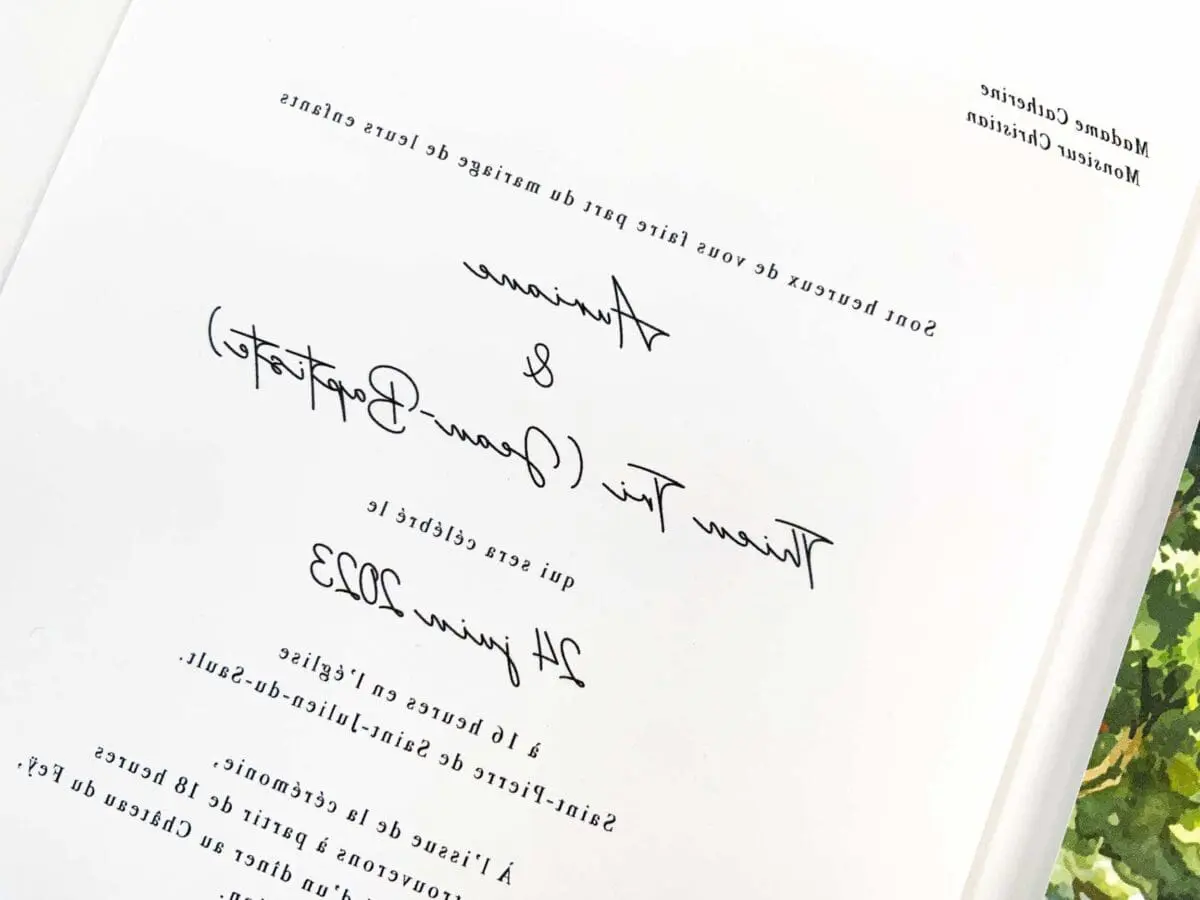 Madame Catherine
Monsieur Christian
Sont heureux de vous faire part du mariage de leurs enfants
Auriane
&
Thien Tri (Jean-Baptiste)
qui sera célébré le
24 juin 2023
à 16 heures en l'église
Saint-Pierre de Saint-Julien-du-Sault.
À l'issue de la cérémonie,
trouverons à partir de 18 heures
d'un dîner au Château du Feÿ,